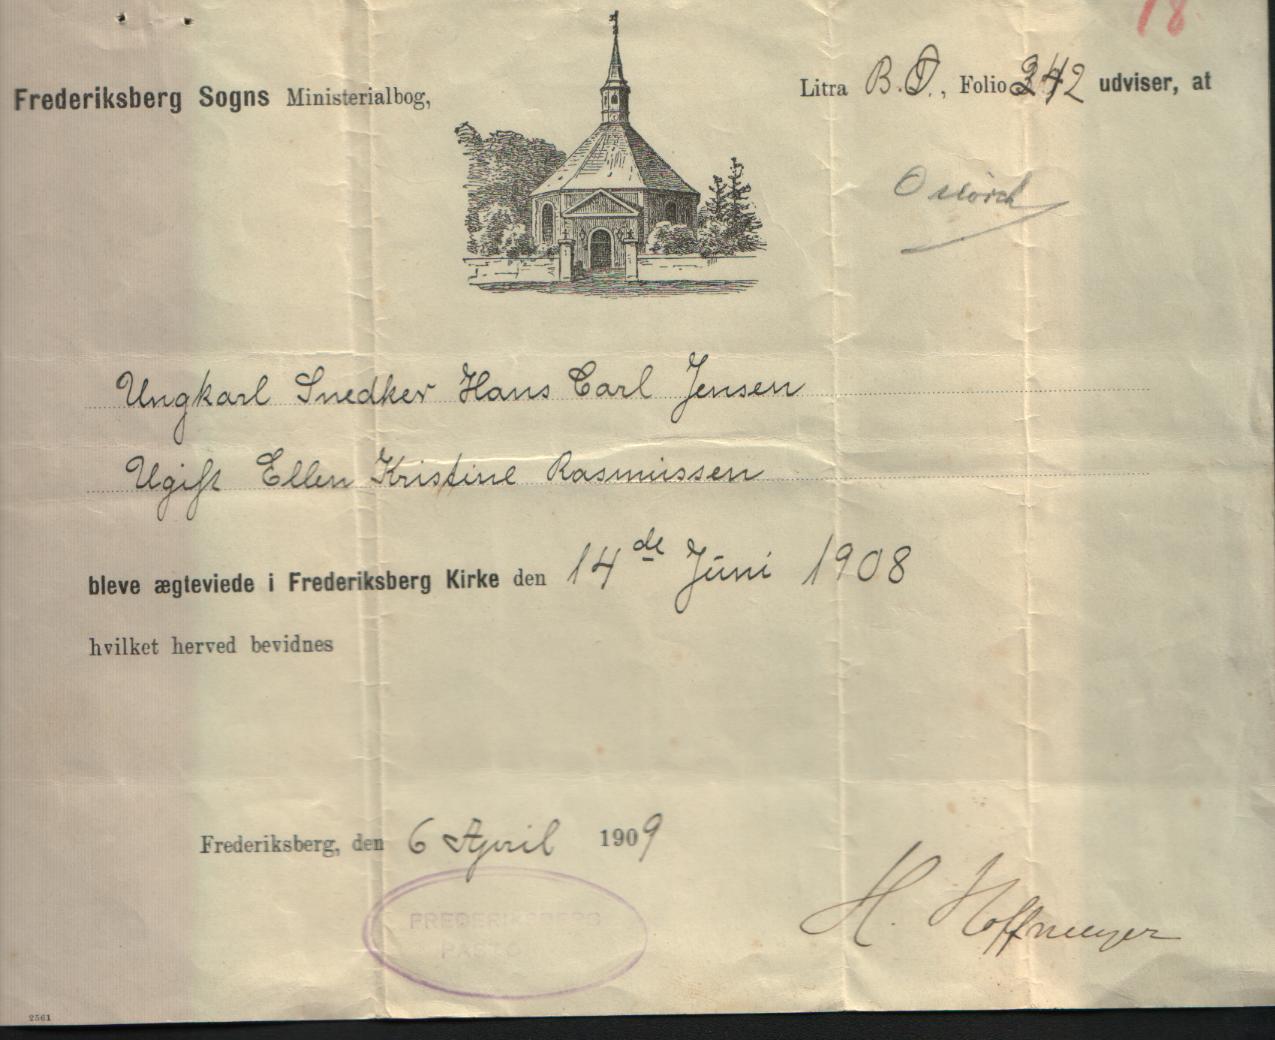 18
Frederiksberg Sogns Ministerialbog, Litra B. , Folio 342 udviser, at
Ungkarl Snedker Hans Carl Jensen
Ugift Ellen Kristine Rasmussen
bleve ægteviede i Frederiksberg Kirke den 14de Juni 1908
hvilket herved bevidnes
Frederiksberg, den 6 April 1909
H. Hoffmeyer
FREDERIKSBERG
2561